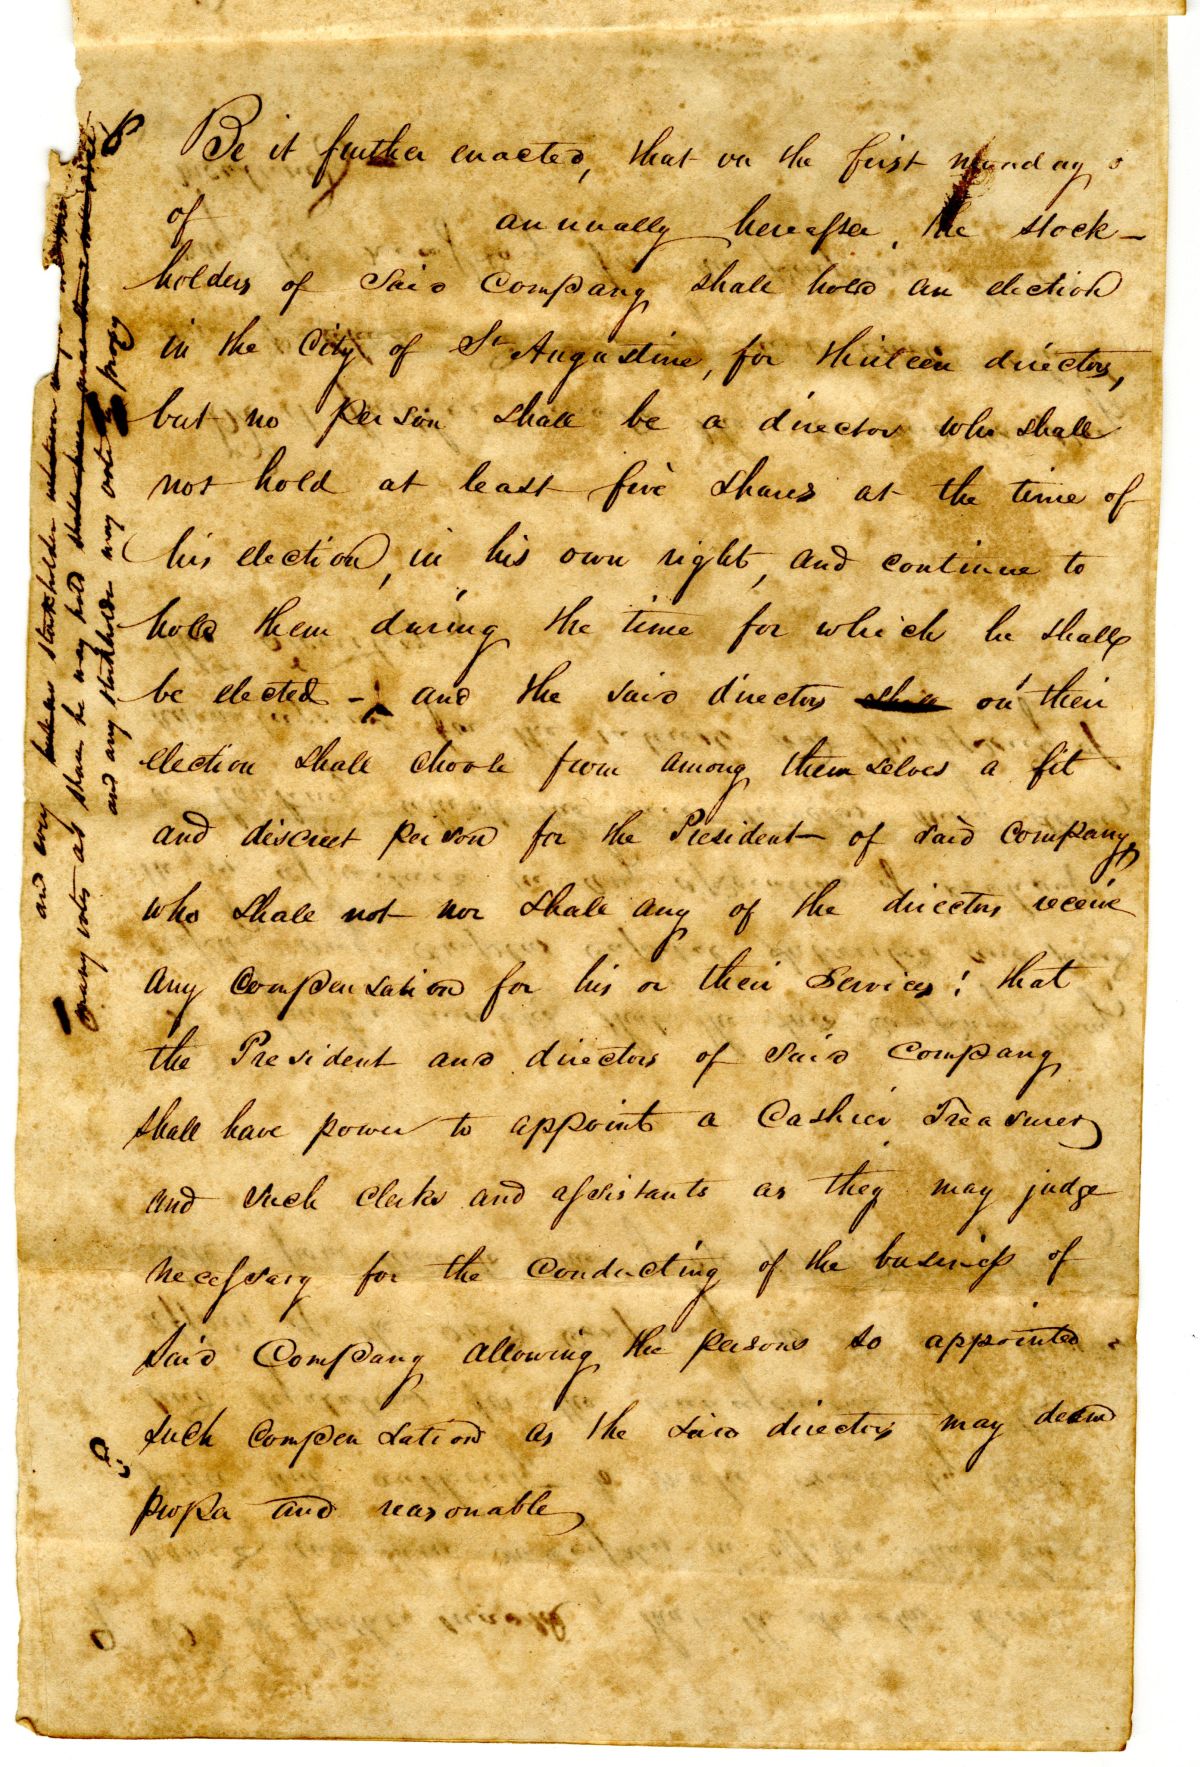 8
Be it further enacted, that on the first monday
of annually hereafter, the stock-
holders of said Company shall hold an election
in the City of St Augustine, for thirteen directors,
but no person shall be a director who shall
not hold at least five shares at the time of
his election, in his own right, and continue to
hold them during the time for which he shall
be elected - and the said directors shall on their
election shall choose from among themselves a fit
and discreet person for the President of said Company,
who shall not nor shall any of the directors receive
any compensation for his or their services; that
the President and directors of said Company
shall have power to appoint a Cashier Treasurer
and such clerks and assistants as they may judge
necessary for the conducting of the business of
said Company allowing the persons so appointed
such compensation as the said directors may deem
proper and reasonable
and every stockholder
many votes as shares he may hold
and any stockholder may vote by proxy